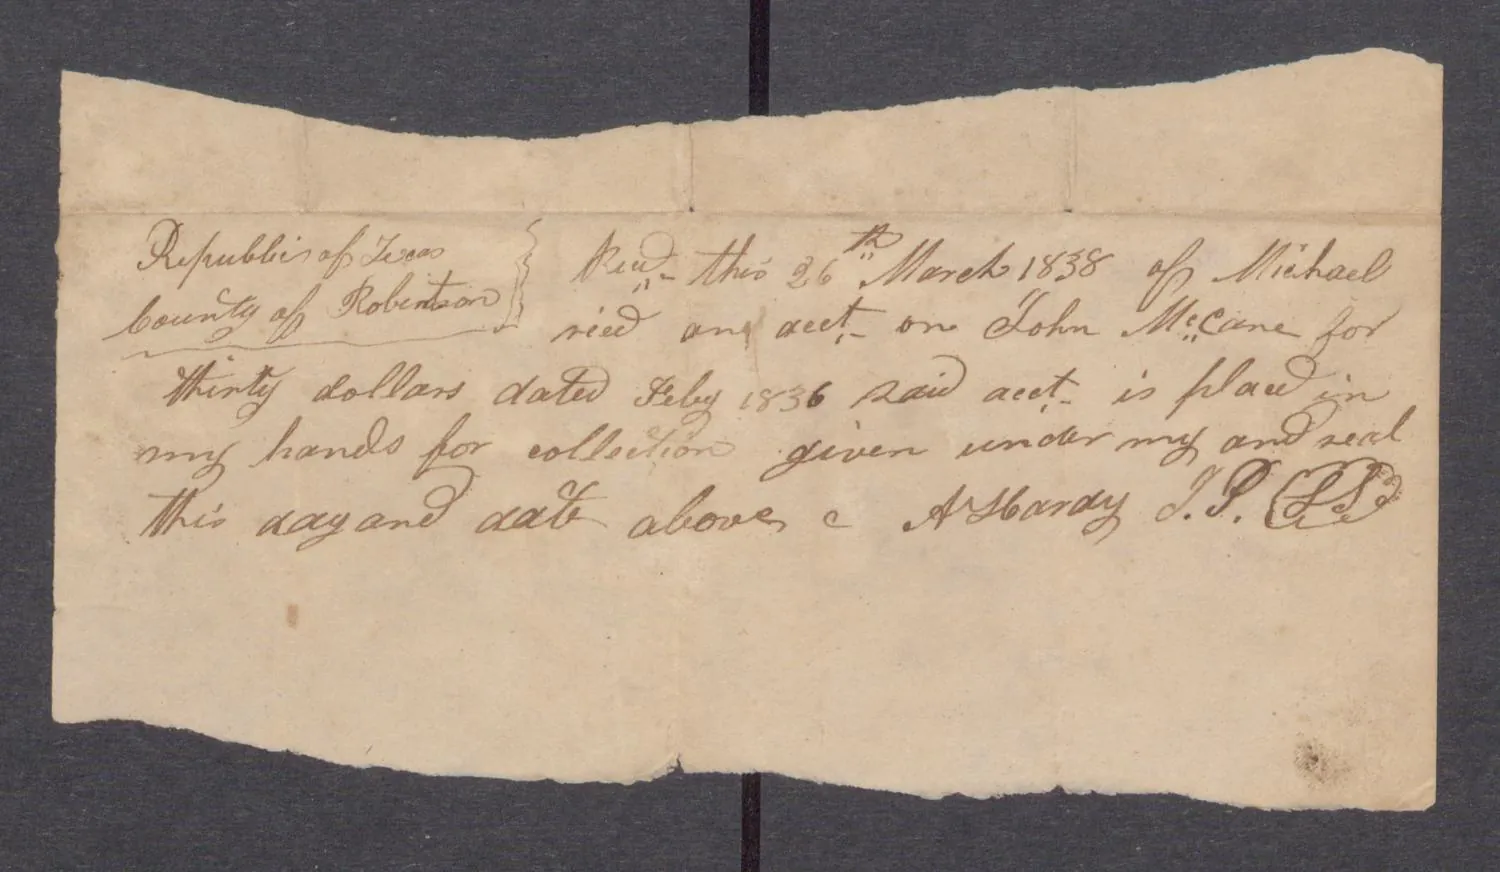 Republic of Texas
County of Robertson
Recd this 26th March 1838 of Michael
ried an acct on John McCane for
thirty dollars dated Feby 1836 said acct is placed in
my hands for collection given under my and seal
this day and date above A Hardy J. P. (LS)